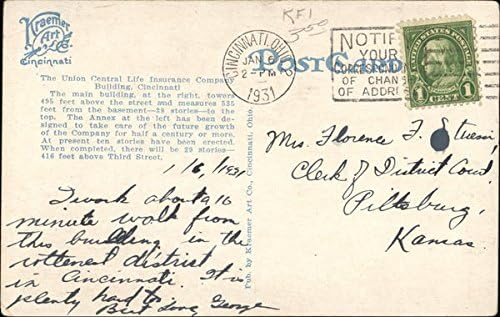 Kraemer
Art
Co.
Cincinnati
The Union Central Life Insurance Company
Building, Cincinnati
The main building, at the right, towers
495 feet above the street and measures 535
feet from the basement—38 stories—to the
top. The Annex at the left has been de-
signed to take care of the future growth
of the Company for half a century or more.
At present ten stories have been erected.
When completed, there will be 29 stories—
416 feet above Third Street.
1/6/1931
I work about a 10
minute walk from
this building in the
rottenest district
in Cincinnati. It is
plenty hard to
Best Love George
Pub. by Kraemer Art Co., Cincinnati, Ohio.
POST CARD
CINCINNATI, OHIO
JAN 6
2-PM
1931
NOTIFY
YOUR
CORRESPONDENTS
OF CHANGE
OF ADDRESS
UNITED STATES POSTAGE
1 CENT 1
Mrs. Florence F.
Clerk of District Court,
Pittsburg,
Kansas.